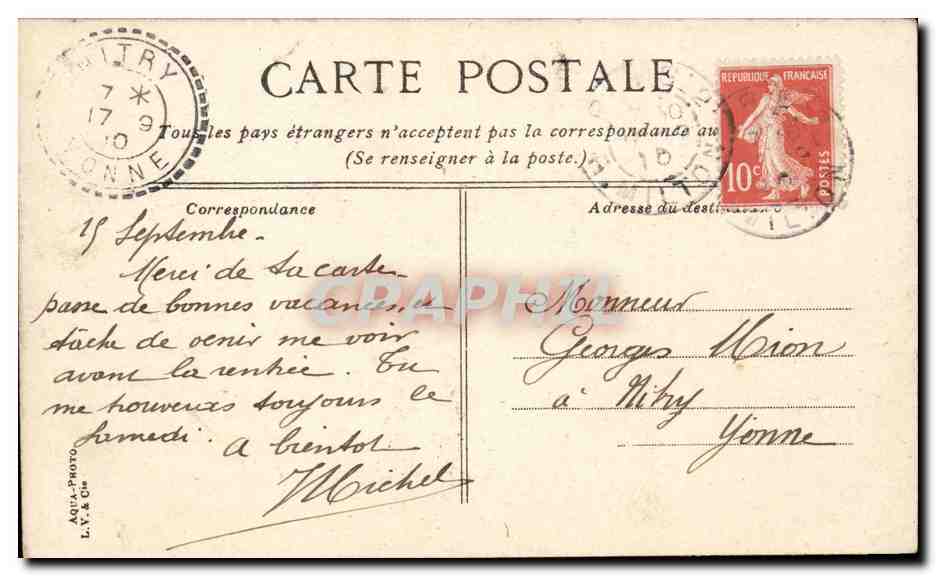 NITRY
7 *
17 9
10
YONNE
CARTE POSTALE
Tous les pays étrangers n'acceptent pas la correspondance au
(Se renseigner à la poste.)
REPUBLIQUE FRANÇAISE
10c POSTES
Correspondance
Adresse du destinataire
15 Septembre_
Merci de ta carte_
passe de bonnes vacances, et
tâche de venir me voir
avant la rentrée. Tu
me trouveras toujours le
samedi. A bientot
Michel
Monsieur
Georges Mion
à Nitry
Yonne
AQUA-PHOTO
L. V. & Cie
CRAPHIL